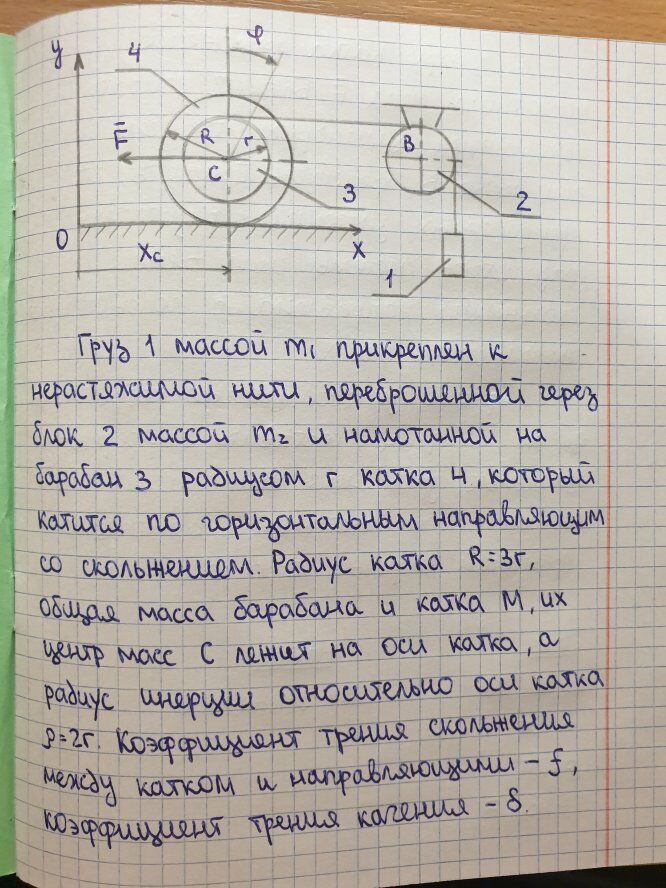 y
4
φ
F
R
r
C
B
3
2
0
Xc
X
1
Груз 1 массой m₁ прикреплен к
нерастяжимой нити, переброшенной через
блок 2 массой m₂ и намотанной на
барабан 3 радиусом r катка 4, который
катится по горизонтальным направляющим
со скольжением. Радиус катка R=3r,
общая масса барабана и катка M, их
центр масс C лежит на оси катка, а
радиус инерции относительно оси катка
ρ=2r. Коэффициент трения скольжения
между катком и направляющими - f,
коэффициент трения качения - δ.